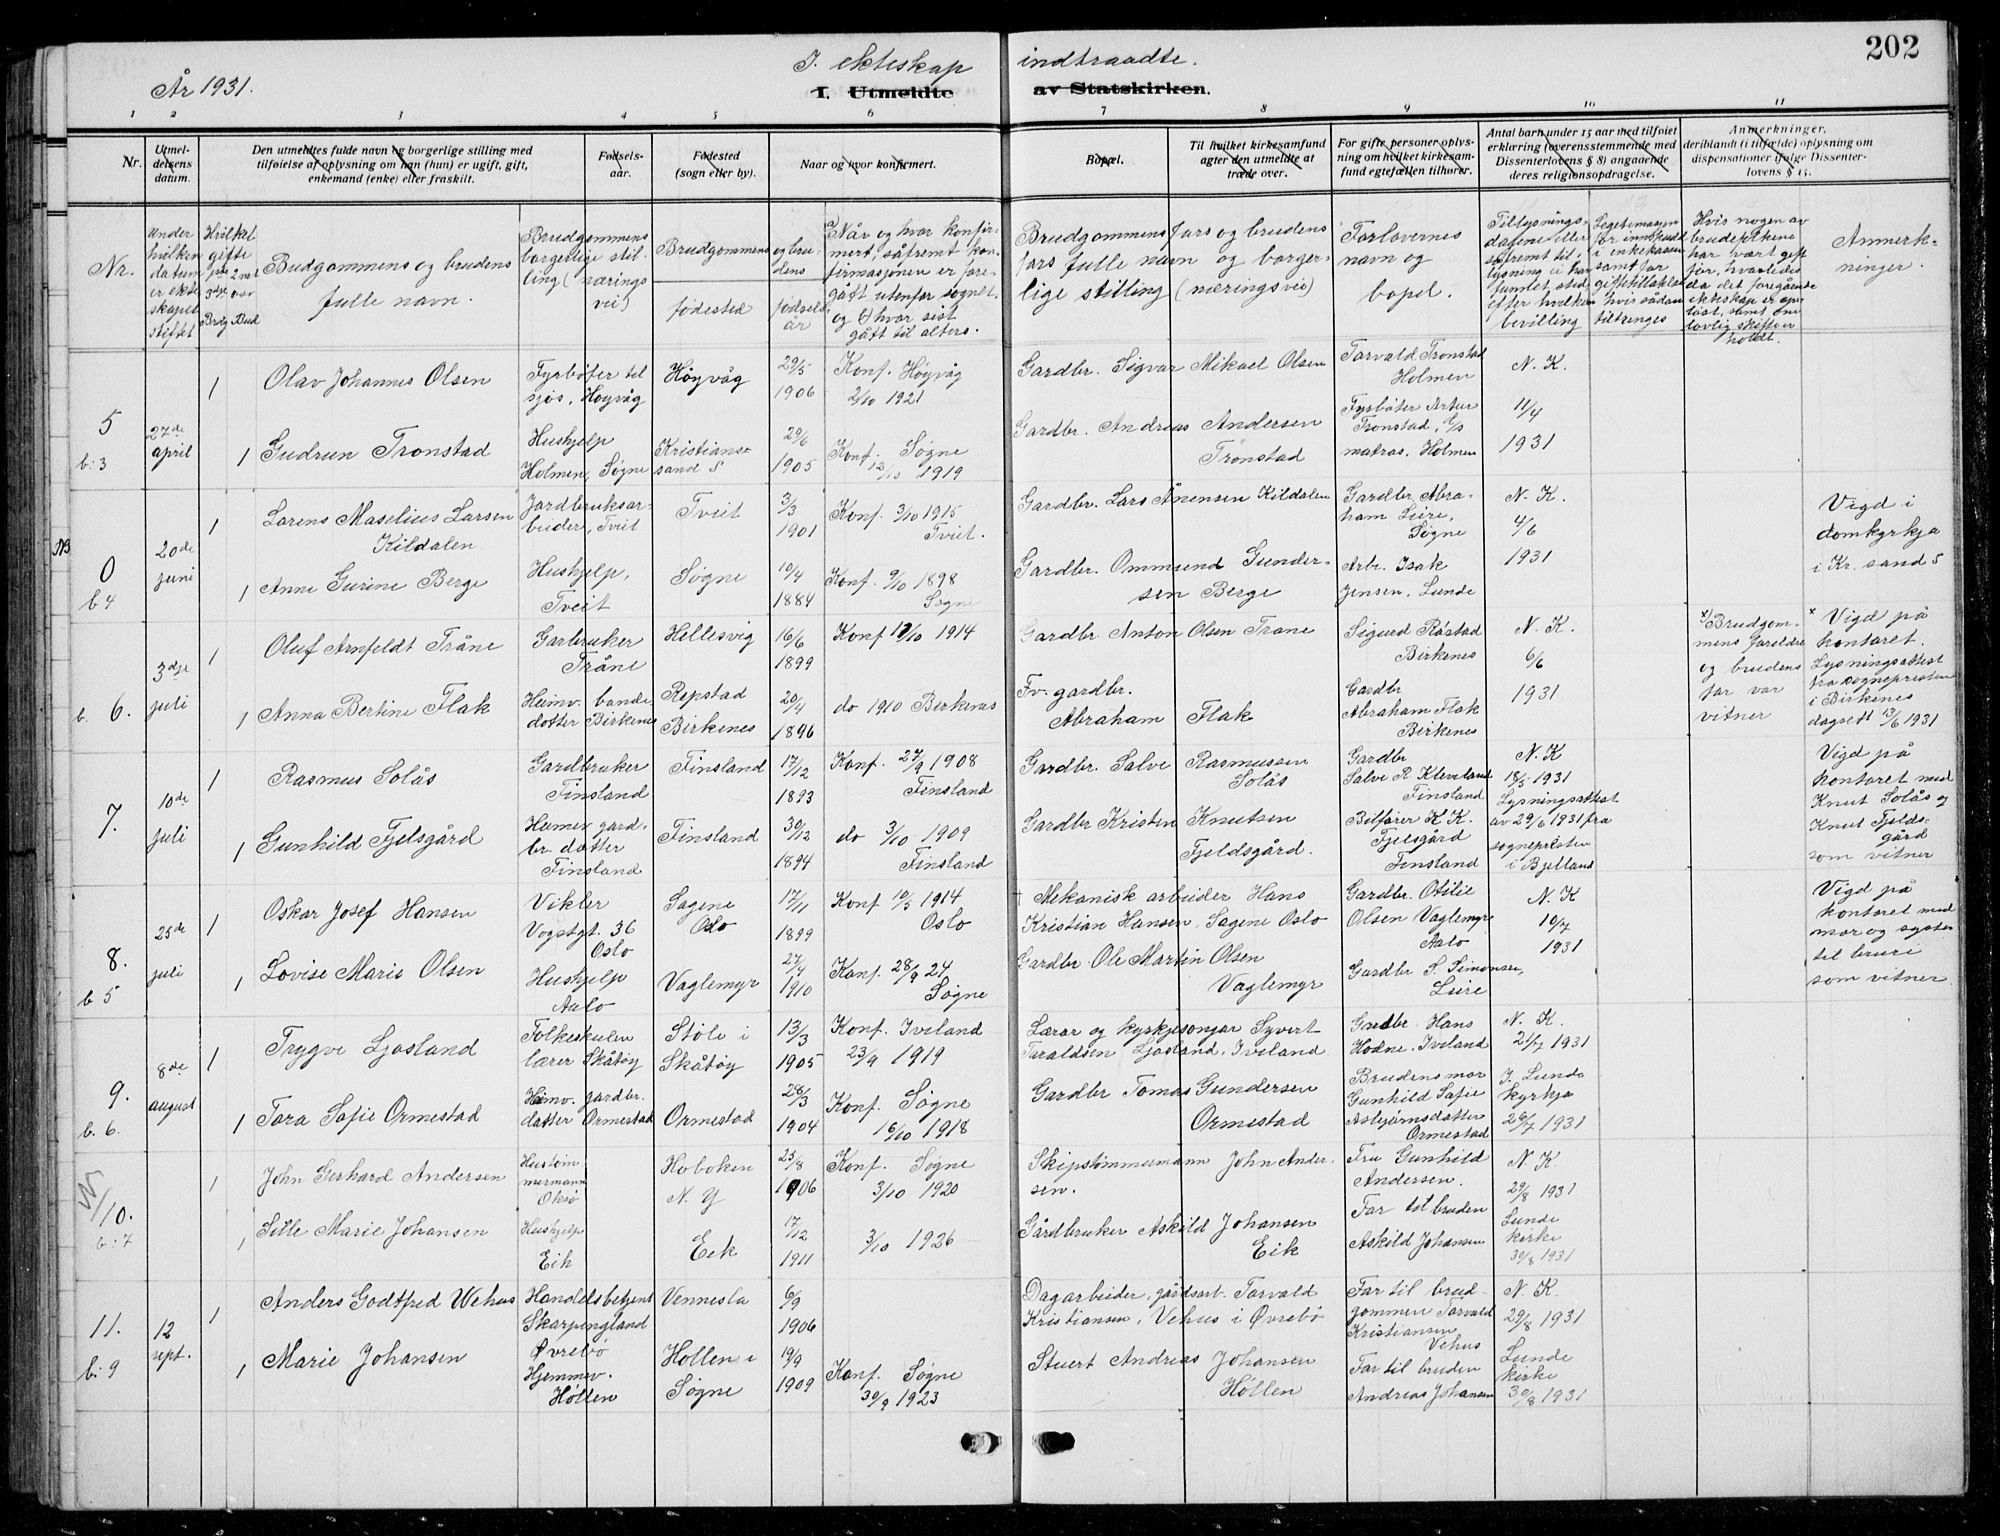 202
År 1931.
I. ekteskap indtraadte.
I. Utmeldte av Statskirken.
1 2 3 4 5 6 7 8 9 10 11
Nr.
Utmeldelsens datum.
Den utmeldtes fulde navn og borgerlige stilling med
tilføielse af oplysning om han (hun) er ugift, gift,
enkemand (enke) eller fraskilt.
Fødselsaar.
Fødested
(sogn eller by).
Naar og hvor konfirmert.
Bopæl.
Til hvilket kirkesamfund
agter den utmeldte at
træde over.
For gifte personer oplysning
om hvilket kirkesamfund
egtefællen tilhører.
Antal barn under 15 aar med tilføiet
erklæring (overensstemmende med
Dissenterlovens § 8) angaaende
deres religionsopdragelse.
Anmerkninger,
deriblandt (i tilfælde) oplysning om
dispensationer ifølge Dissenterlovens
§ 15.
Nr.
Under hvilken datum er ekteskapet stiftet
Hvilket gifte 1ste 2net 3dje osv
Brdg Brud
Budgommens og brudens
fulle navn.
Brudgommens
borgerlige stilling
(næringsvei)
Brudgommens og brudens
fødested
fødselsår
Når og hvor konfirmert,
såfremt konfirmasjonen
er foregått
utenfor sognet,
og hvor sist
gått til alters.
Brudgommens fars og brudens
fars fulle navn og borgerlige
stilling (næringsvei)
Forlovernes
navn og
bopel.
Tillysningsdatene
eller
såfremt tillysning
ei har
funnet sted
efter hvilken
bevilling
Legitimasjon
for innskudd
i enkekassen
samt for
giftetillatelse
hvis sådan
tiltrenges
Hvis nogen av
brudefolkene
har vært gift
før, hvorledes
da det foregående
ekteskap er opløst,
samt om
lovlig skifte er
holdt.
Anmerkninger.
5
b: 3
27de april
1
Olav Johannes Olsen
Fyrbøter til
sjøs, Høyvåg
Høyvåg
29/5
1906
Konf. Høyvåg
2/10 1921
Gardbr. Sigvar Mikael Olsen
Torvald Tronstad
Holmen
N. K.
11/4
1931
1
Gudrun Tronstad
Hushjelp
Holmen, Søgne
Kristiansand S
29/6
1905
Konf. Søgne
12/10 1919
Gardbr. Andreas Andersen
Tronstad
Fyrbøter Artur
Tronstad,
matros, Holmen
NB
0
b 4
20de juni
1
Lorens Maselius Larsen
Kildalen
Jordbruksarbeider,
Tveit
Tveit
3/3
1901
Konf. 3/10 1915
Tveit.
Gardbr. Lars Ånensen Kildalen
Gardbr. Abraham
Leire,
Søgne
N. K.
4/6
1931
Vigd i
domkyrkja
i Kr. sand S
1
Anne Gurine Berge
Hushjelp,
Tveit
Søgne
10/4
1884
Konf. 9/10 1898
Søgne
Gardbr. Ommund Gundersen
Berge
Arbr. Isak
Jensen, Lunde
b. 6.
3dje juli
1
Oluf Arnfeldt Tråne
Garbruker
Tråne
Hellesvig
16/6
1899
Konf 11/10 1914
Gardbr Anton Olsen Trane
Sigurd Røstad
Birkenes
N. K.
6/6
1931
x) Brudgommens
foreldre
og brudens
far var
vitner
x Vigd på
kontoret.
Lysningsattest
fra sognepresten
i Birkenes
dagsett 13/6 1931
1
Anna Bertine Flak
Heimv. bondedotter
Birkenes
Repstad
Birkenes
20/4
1896
do 1910 Birkenes
Fv. gardbr.
Abraham Flak
Gardbr
Abraham Flak
Birkenes
7.
10de juli
1
Rasmus Solås
Gardbruker
Finsland
Finsland
17/12
1893
Konf. 27/9 1908
Finsland
Gardbr. Salve Rasmussen
Solås
Gardbr
Salve R Kleveland
Finsland
N. K
18/5 1931
Lysningsattest
av 29/6 1931 fra
sognepresten
i Bjelland
Vigd på
kontoret med
Knut Solås og
Knut Fjeldsgård
som vitner
1
Gunhild Fjelsgård
Heimev gardbr.
dotter
Finsland
Finsland
30/12
1894
do 3/10 1909
Finsland
Gardbr Kristen Knutsen
Fjeldsgård.
Bilfører K K.
Fjelsgård
Finsland
8.
b 5
25de juli
1
Oskar Josef Hansen
Vikler
Vogstgt. 36
Oslo
Sagene
Oslo
17/11
1899
Konf 10/5 1914
Oslo
† Mekanisk arbeider Hans
Kristian Hansen, Sagene Oslo
Gardbr. Otilie
Olsen Vaglemyr
Aalo
N. K
10/7
1931
Vigd på
kontoret med
mor og syster
til bruri
som vitner
1
Lovise Marie Olsen
Hushjelp
Aalo
Vaglemyr
27/4
1910
Konf. 28/9 24
Søgne
Gardbr. Ole Martin Olsen
Vaglemyr
Gardbr S. Simonsen,
Leire
9.
b. 6.
8de august
1
Trygve Ljosland
Folkeskulen
lærer Skåtøy
Støle i
Skåtøy
13/3
1905
Konf. Iveland
23/9 1919
Lærar og kyrkjesongar Syvert
Taraldsen Ljosland, Iveland
Gardbr. Hans
Hodne. Iveland
N. K.
21/7 1931
1
Tora Sofie Ormestad
Heimv. gardbr.
dotter Ormestad
Ormestad
28/3
1904
Konf. Søgne
6/10 1918
Gardbr Tomas Gundersen
Ormestad
Brudens mor
Gunhild Sofie
Asbjørnsdatter
Ormestad
I. Lunde
kyrkja
26/7 1931
10.
b: 7
1
John Gerhard Andersen
Hustømmermann
Oksø
Hoboken
N. Y
23/8
1906
Konf. Søgne
3/10 1920
Skipstømmermann John Andersen.
Fru Gunhild
Andersen.
N. K.
29/8 1931
1
Sille Marie Johansen
Hushjelp
Eik
Eik
17/12
1911
3/10 1926
Gårdbruker Askild Johansen
Eik
Far til bruden
Askild Johansen
Lunde
kirke
30/8 1931
11.
b: 9
12 sept.
1
Anders Godtfred Wehus
Handelsbetjent
Skarpengland
Øvrebø
Vennesla
6/9
1906
Dagarbeider, gårdsarb. Torvald
Kristiansen, Vehus i Øvrebø
Far til brudgommen
Torvald
Kristiansen
Vehus
N. K.
29/8 1931
1
Marie Johansen
Hjemmev.
Høllen
Hollen i
Søgne
19/9
1909
Konf. Søgne
30/9 1923
Stuert Andreas Johansen
Høllen
Far til bruden
Andreas Johansen
Lunde
kirke
30/8 1931